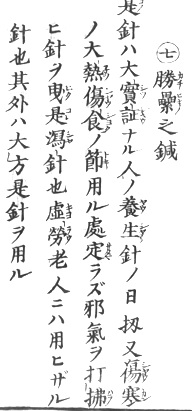 ㊆勝曩之鍼
此針ハ大實証ナル人ノ養生針ノ日扱又傷寒
ノ大熱傷食ノ節用ル處定ラズ邪氣ヲ打拂
ヒ針ヲ曳是瀉針也虛勞老人ニハ用ヒザル
針也其外ハ大方是針ヲ用ル